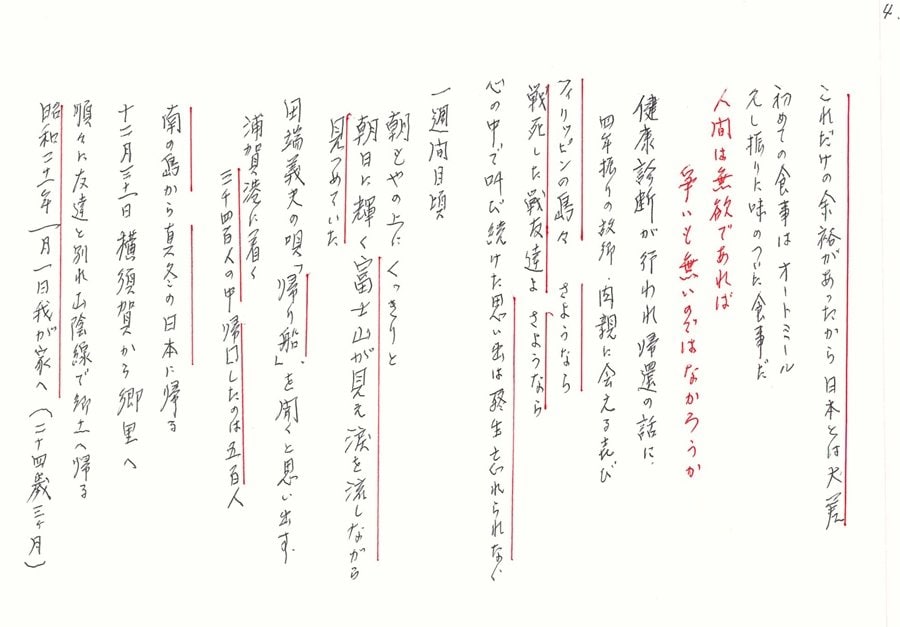 4.
これだけの余裕があったから 日本とは大差
初めての食事は オートミール
久し振りに味のついた食事だ
人間は無欲であれば
争いも無いのではなかろうか
健康診断が行われ帰還の話に
四年振りの故郷、肉親に会える喜び
フィリッピンの島々 さようなら
戦死した戦友達よ さようなら
心の中で叫び続けた思い出は終生忘れられない
一週間目頃
朝もやの上に くっきりと
朝日に輝く 富士山が見え 涙を流しながら
見つめていた
田端義夫の唄「帰り船」を聞くと思い出す
浦賀港に着く
三千四百人の中 帰国したのは五百人
南の島から真冬の日本に帰る
十二月三十一日 横須賀から郷里へ
順々に友達と別れ山陰線で郷土へ帰る
昭和二十一年 一月一日我が家へ (二十四歳三ヶ月)